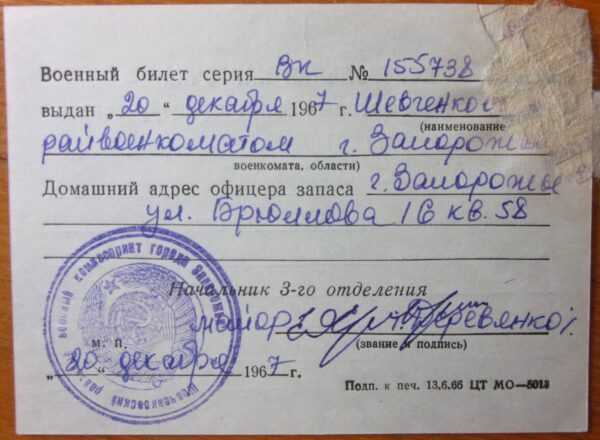 Военный билет серия Вк № 155738
выдан „20“ декабря 1967 г. Шевченко
(наименование
райвоенкоматом г. Запорож
военкомата, области)
Домашний адрес офицера запаса г. Запорожье
ул. Брюллова 16 кв. 58
Начальник 3-го отделения
майор Деревянко
м. п. (звание и подпись)
„20“ декабря 1967 г.
Подп. к печ. 13.6.66 ЦТ МО—5013
военный комиссариат города
Шевченковский